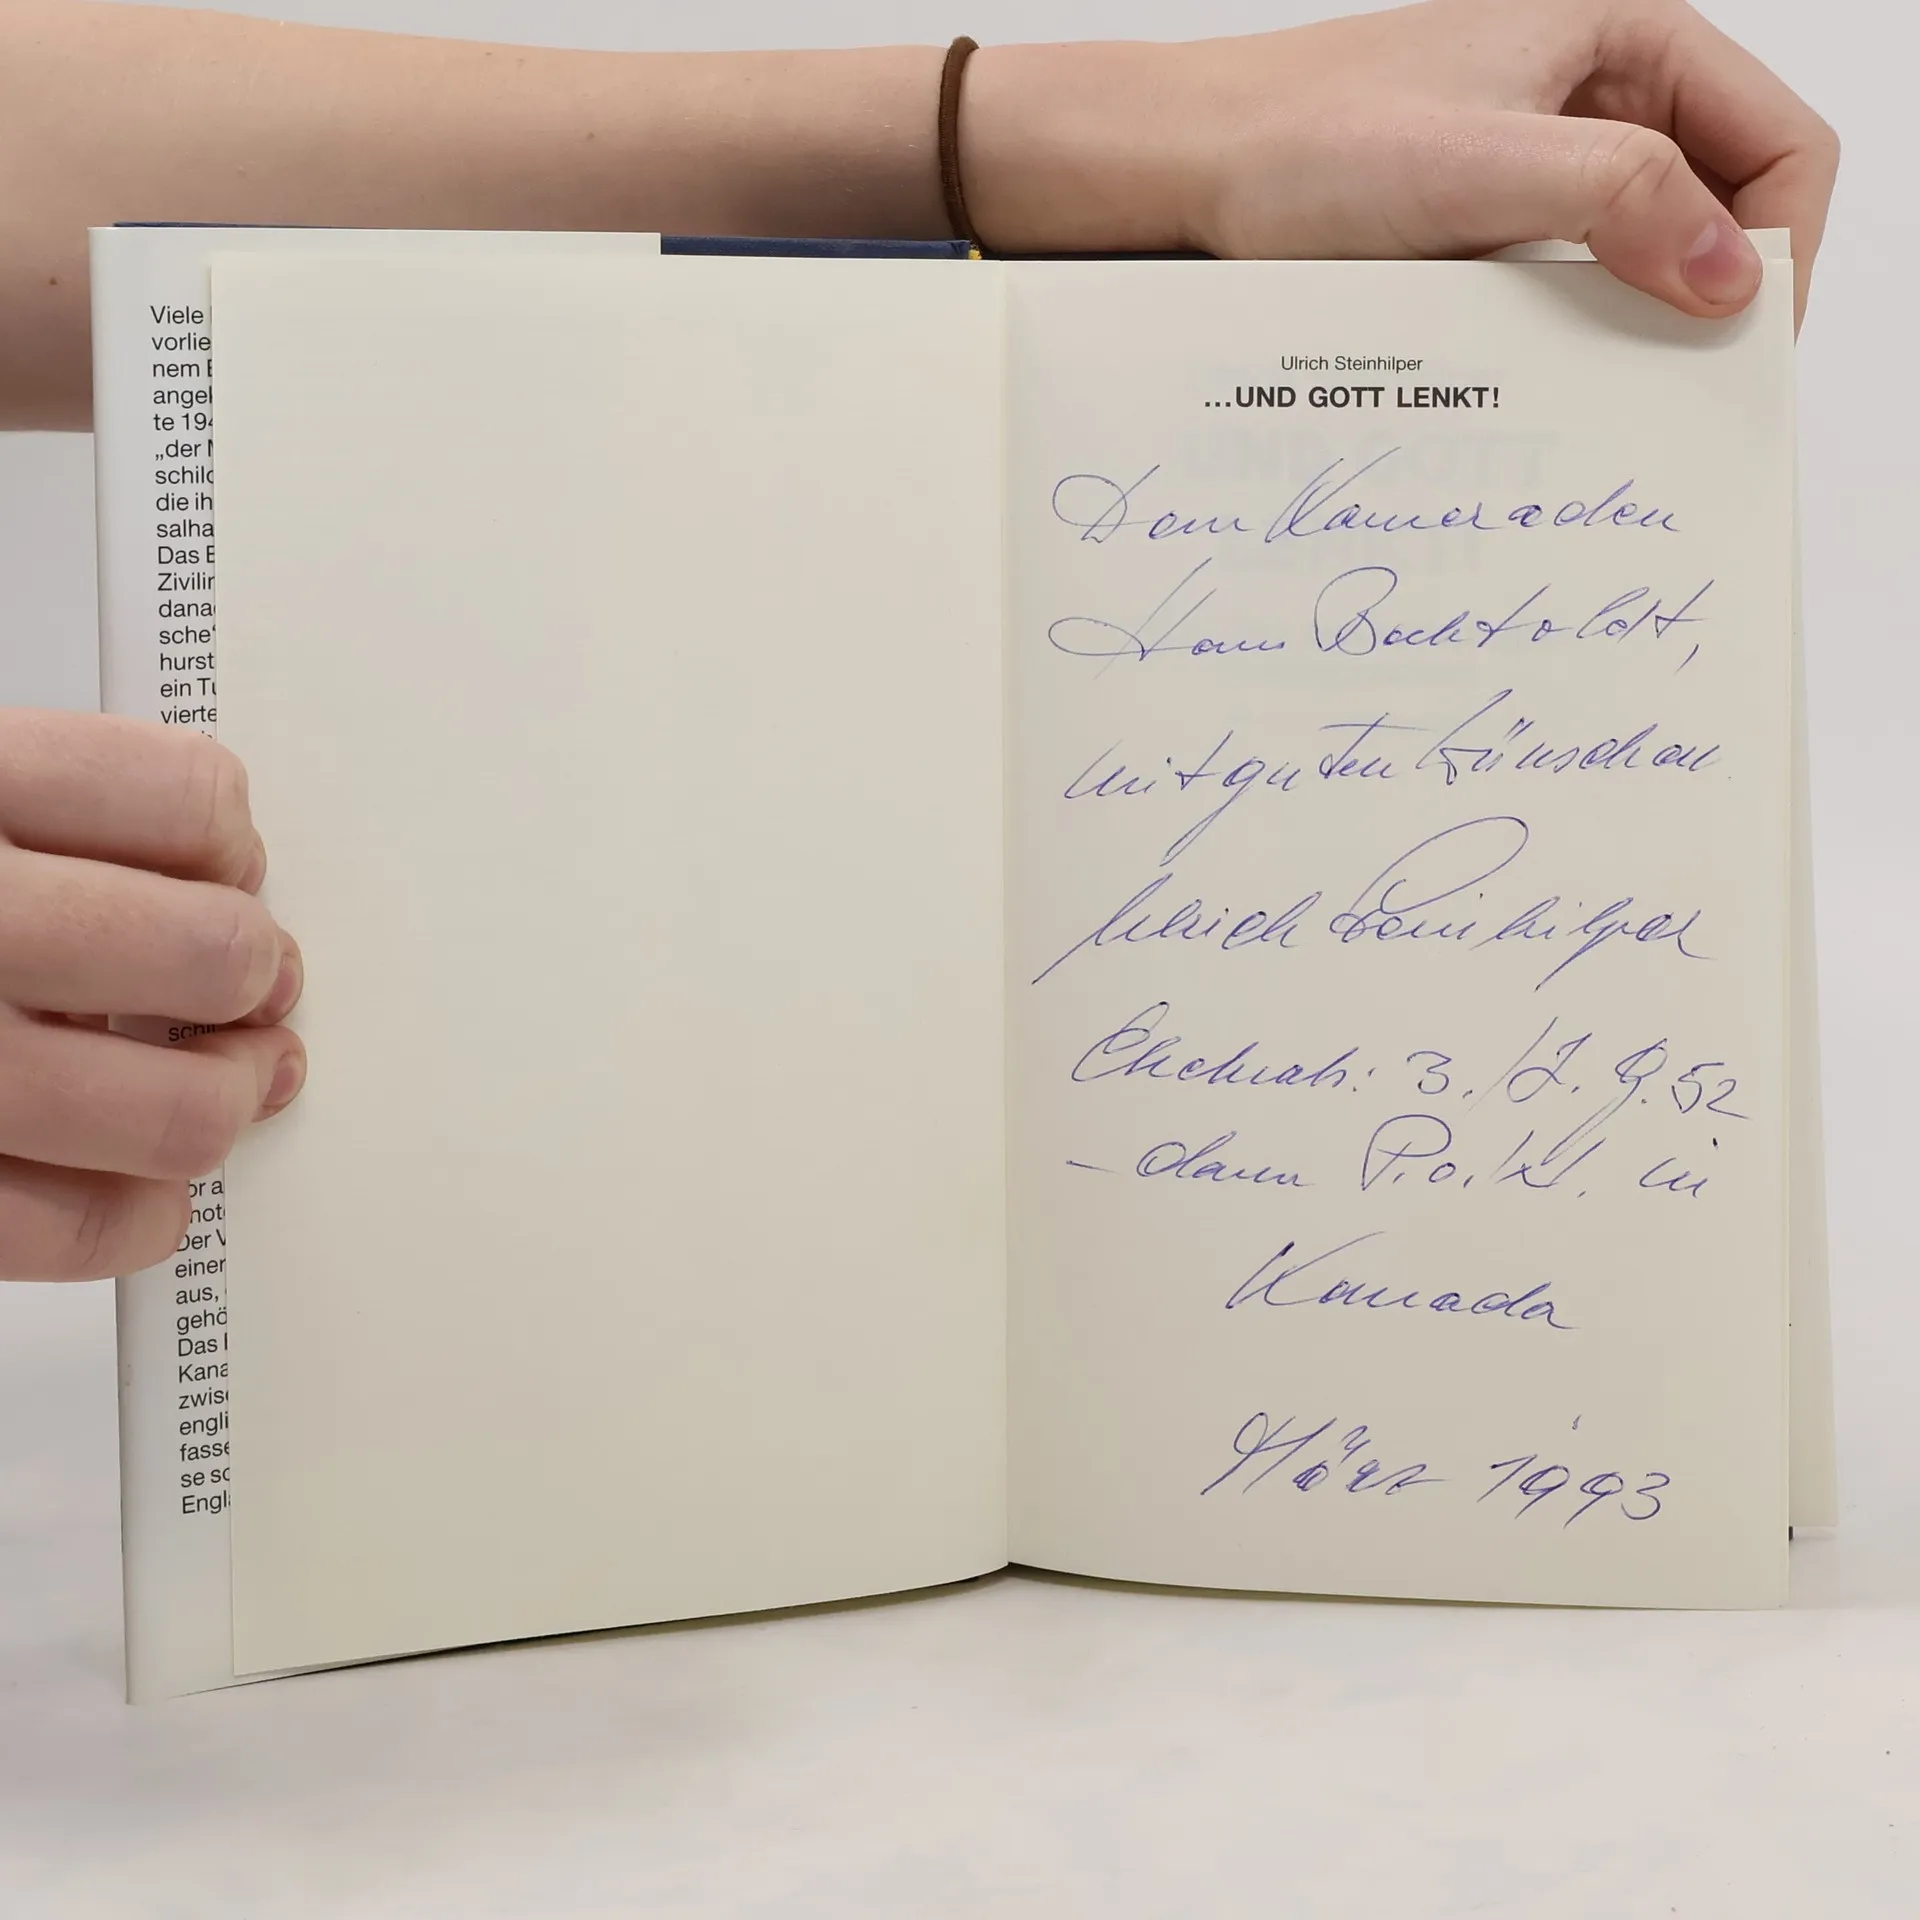 Viele
vorlie
nem
angel
te 194
„der
schild
die ih
salha
Das
Zivilin
dana
sche“
hurst
ein Tu
vierte
schil
or a
not
Der V
einer
aus,
gehö
Das
Kana
zwisc
engli
fasse
se sc
Engla
Ulrich Steinhilper
...UND GOTT LENKT!
Dem Kameraden
Hans Bechtoldt,
mit guten Wünschen
Ulrich Steinhilper
Ehemals: 3./J.G.52
– dann P.o.W. in
Kanada
März 1993